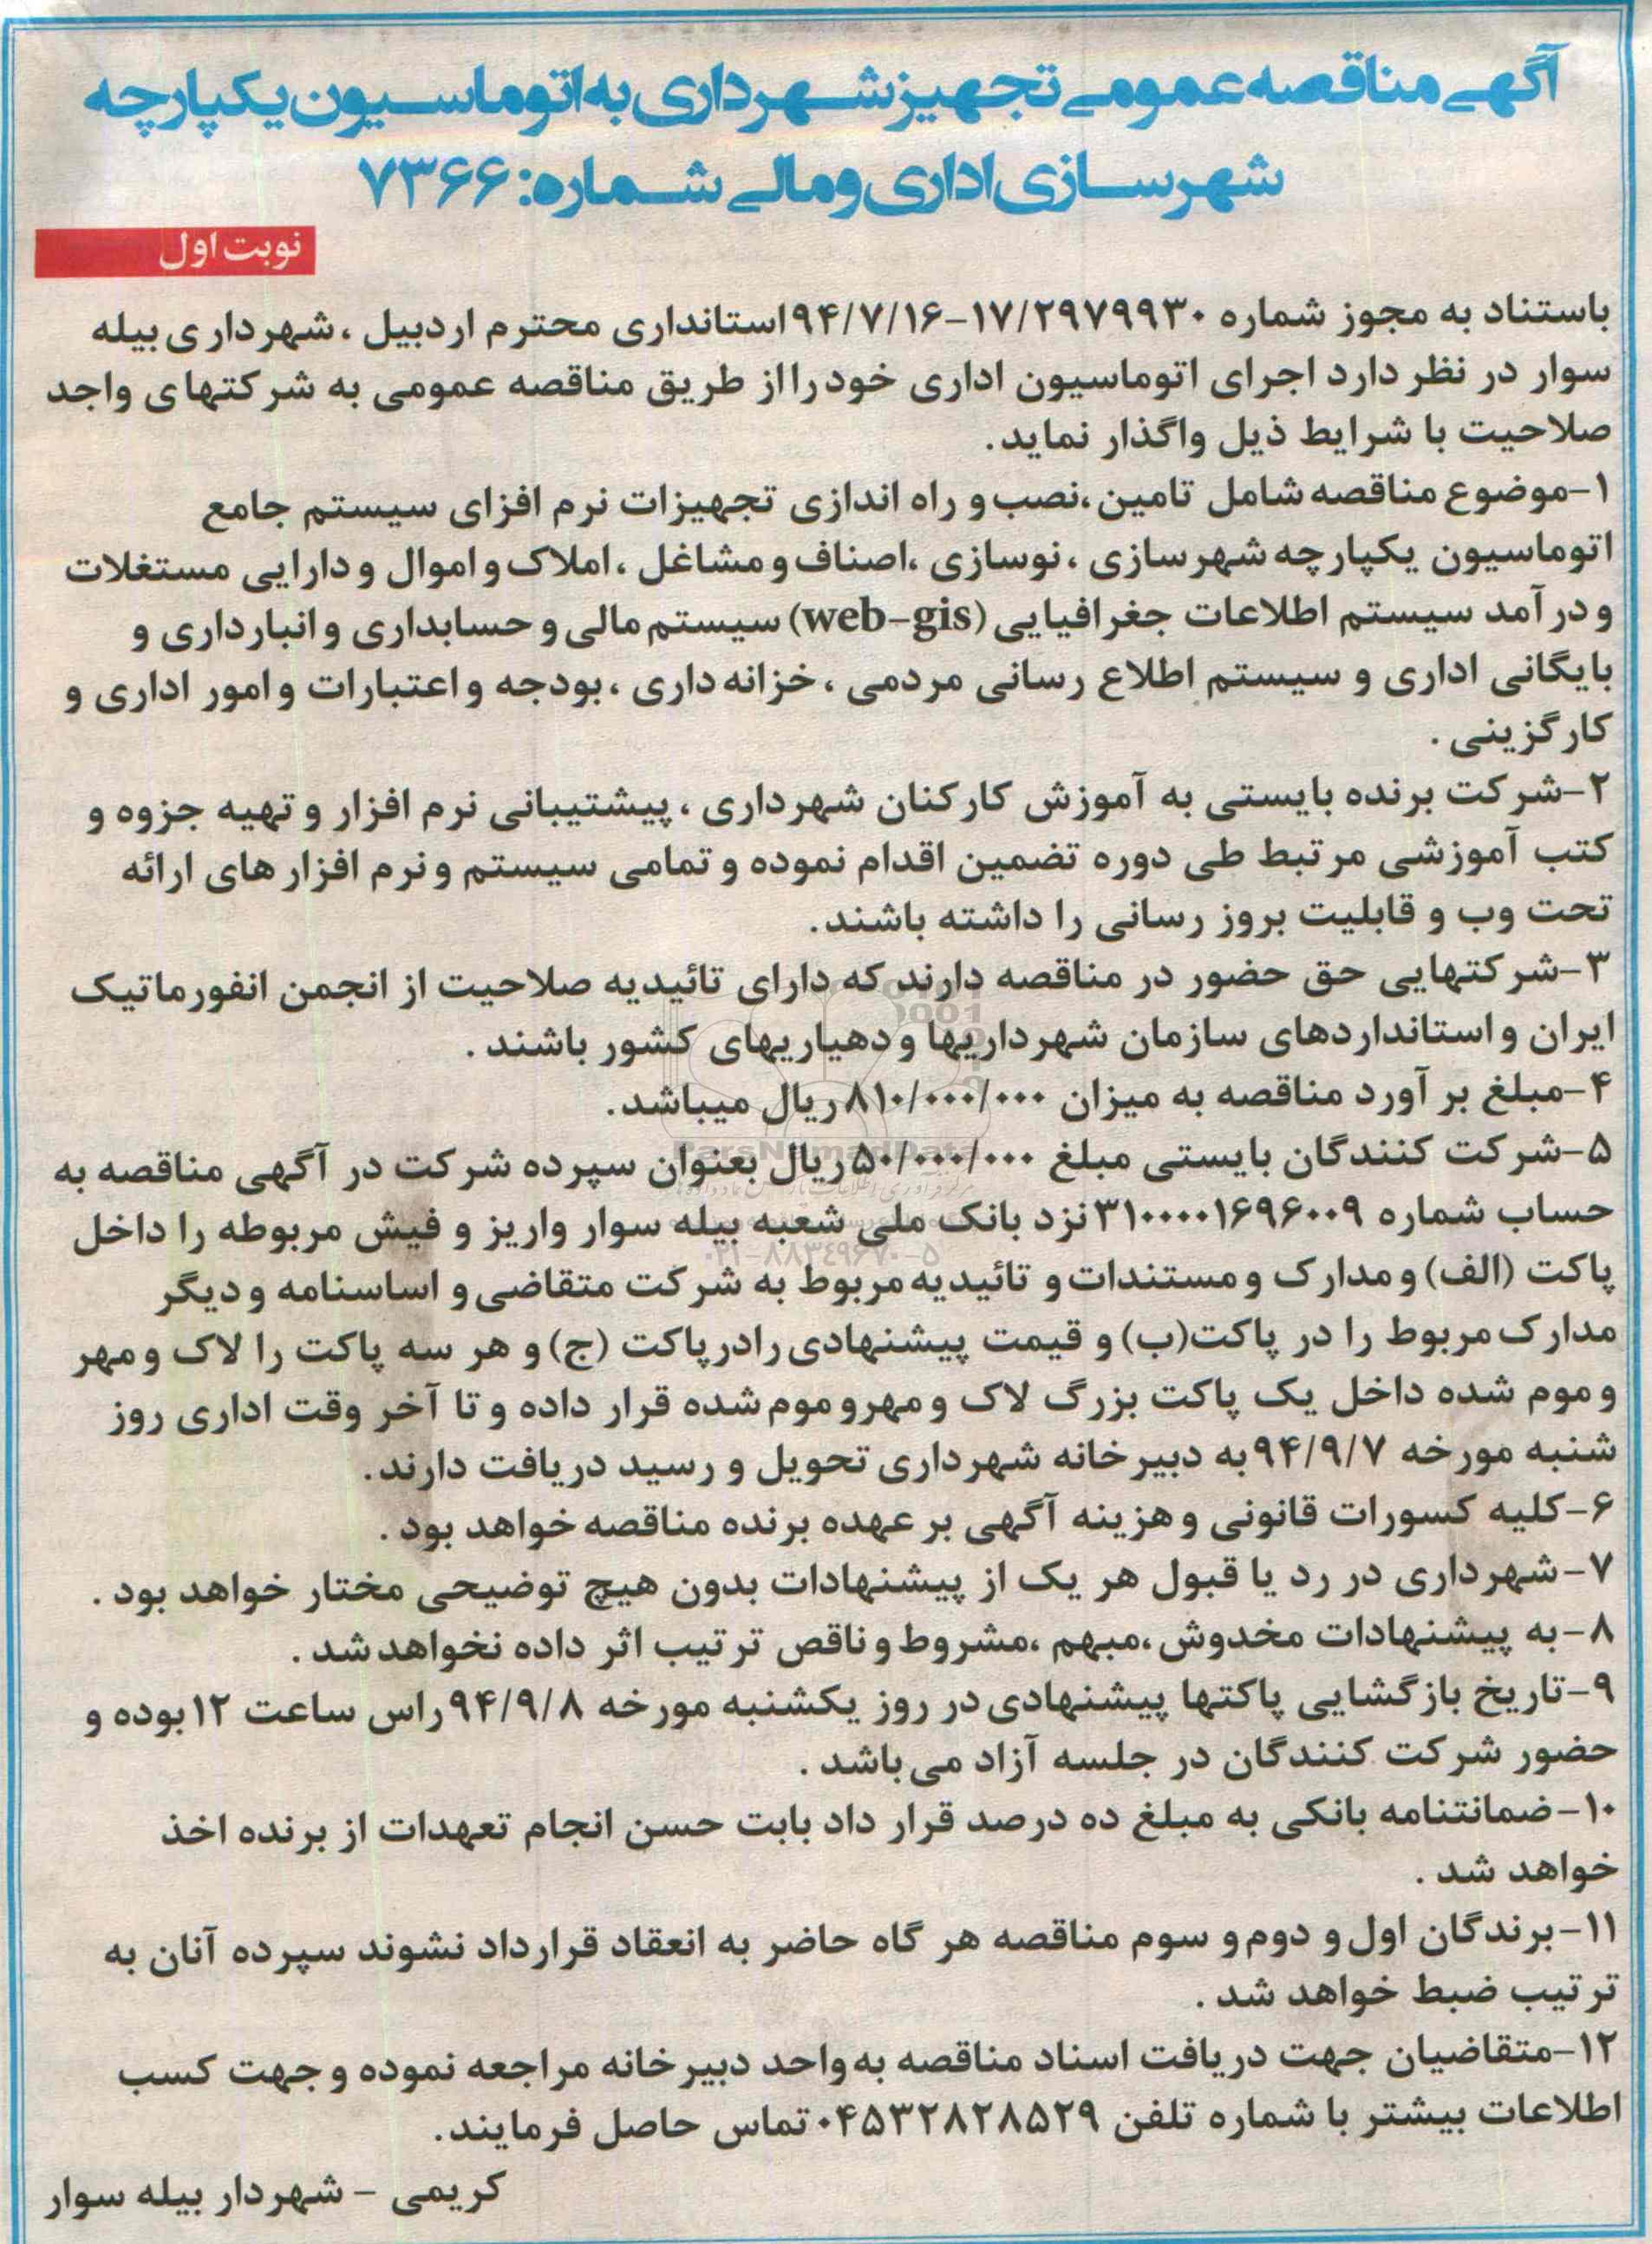 آگهی مناقصه عمومی تجهیز شهرداری به اتوماسیون یکپارچه
شهرسازی اداری و مالی شماره: ۷۳۶۶
نوبت اول
باستناد به مجوز شماره ۱۷/۲۹۷۹۹۳۰-۹۴/۷/۱۶ استانداری محترم اردبیل ، شهرداری بیله
سوار در نظر دارد اجرای اتوماسیون اداری خود را از طریق مناقصه عمومی به شرکتهای واجد
صلاحیت با شرایط ذیل واگذار نماید.
۱-موضوع مناقصه شامل تامین ،نصب و راه اندازی تجهیزات نرم افزای سیستم جامع
اتوماسیون یکپارچه شهرسازی ، نوسازی ،اصناف و مشاغل ، املاک و اموال و دارایی مستغلات
و درآمد سیستم اطلاعات جغرافیایی (web-gis) سیستم مالی و حسابداری و انبارداری و
بایگانی اداری و سیستم اطلاع رسانی مردمی ، خزانه داری ، بودجه و اعتبارات و امور اداری و
کارگزینی .
۲-شرکت برنده بایستی به آموزش کارکنان شهرداری ، پیشتیبانی نرم افزار و تهیه جزوه و
کتب آموزشی مرتبط طی دوره تضمین اقدام نموده و تمامی سیستم و نرم افزار های ارائه
تحت وب و قابلیت بروز رسانی را داشته باشند.
۳-شرکتهایی حق حضور در مناقصه دارند که دارای تائیدیه صلاحیت از انجمن انفورماتیک
ایران و استانداردهای سازمان شهرداریها و دهیاریهای کشور باشند .
۴-مبلغ برآورد مناقصه به میزان ۸۱۰/۰۰۰/۰۰۰ ریال میباشد.
ParsNamadData
۵-شرکت کنندگان بایستی مبلغ ۵۰/۰۰۰/۰۰۰ ریال بعنوان سپرده شرکت در آگهی مناقصه به
حساب شماره ۳۱۰۰۰۰۱۶۹۶۰۰۹ نزد بانک ملی شعبه بیله سوار واریز و فیش مربوطه را داخل
۰۲۱-۸۸۳۴۹۶۷۰-۵
پاکت (الف) و مدارک و مستندات و تائیدیه مربوط به شرکت متقاضی و اساسنامه و دیگر
مدارک مربوط را در پاکت(ب) و قیمت پیشنهادی رادرپاکت (ج) و هر سه پاکت را لاک و مهر
و موم شده داخل یک پاکت بزرگ لاک و مهرو موم شده قرار داده و تا آخر وقت اداری روز
شنبه مورخه ۹۴/۹/۷ به دبیرخانه شهرداری تحویل و رسید دریافت دارند.
۶-کلیه کسورات قانونی و هزینه آگهی بر عهده برنده مناقصه خواهد بود .
۷-شهرداری در رد یا قبول هر یک از پیشنهادات بدون هیچ توضیحی مختار خواهد بود .
۸-به پیشنهادات مخدوش ،مبهم ،مشروط و ناقص ترتیب اثر داده نخواهد شد .
۹-تاریخ بازگشایی پاکتها پیشنهادی در روز یکشنبه مورخه ۹۴/۹/۸ راس ساعت ۱۲ بوده و
حضور شرکت کنندگان در جلسه آزاد می باشد .
۱۰-ضمانتنامه بانکی به مبلغ ده درصد قرار داد بابت حسن انجام تعهدات از برنده اخذ
خواهد شد .
۱۱-برندگان اول و دوم و سوم مناقصه هر گاه حاضر به انعقاد قرارداد نشوند سپرده آنان به
ترتیب ضبط خواهد شد .
۱۲-متقاضیان جهت دریافت اسناد مناقصه به واحد دبیرخانه مراجعه نموده و جهت کسب
اطلاعات بیشتر با شماره تلفن ۰۴۵۳۲۸۲۸۵۲۹ تماس حاصل فرمایند.
کریمی - شهردار بیله سوار